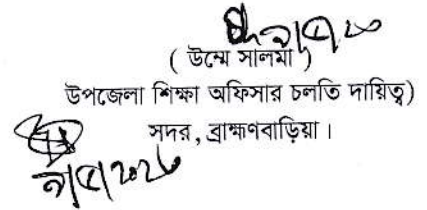 ( উম্মে সালমা )
উপজেলা শিক্ষা অফিসার চলতি দায়িত্ব)
সদর, ব্রাহ্মণবাড়িয়া।